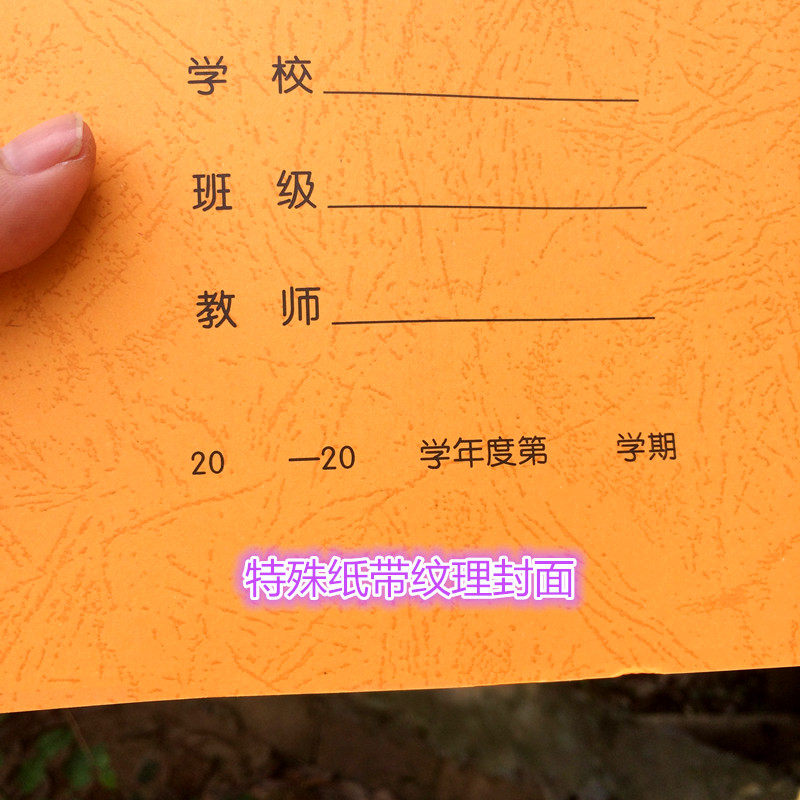 学 校
班 级
教 师
20 —20 学年度第 学期
特殊纸带纹理封面